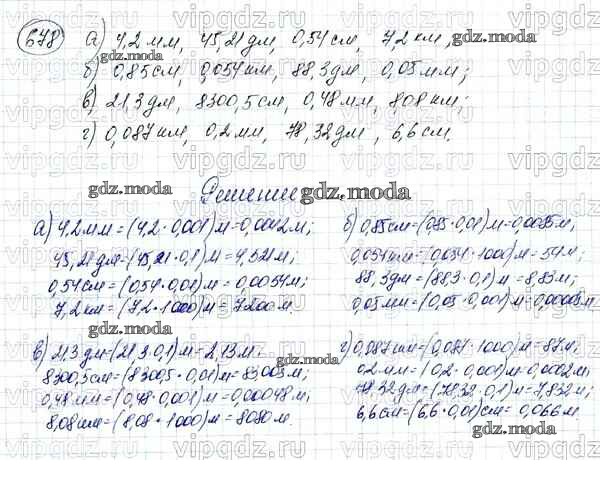 678 а) 4,2 мм, 45,21 дм, 0,54 см, 7,2 км,
б) 0,85 см, 0,054 км, 88,3 дм, 0,05 мм;
в) 21,3 дм, 8300,5 см, 0,48 мм, 8,08 км;
г) 0,087 км, 0,2 мм, 78,32 дм, 6,6 см.
Решение
а) 4,2 мм = (4,2 · 0,001) м = 0,0042 м;
45,21 дм = (45,21 · 0,1) м = 4,521 м;
0,54 см = (0,54 · 0,01) м = 0,0054 м;
7,2 км = (7,2 · 1000) м = 7200 м.
б) 0,85 см = (0,85 · 0,01) м = 0,0085 м;
0,054 км = (0,054 · 1000) м = 54 м;
88,3 дм = (88,3 · 0,1) м = 8,83 м;
0,05 мм = (0,05 · 0,001) м =
в) 21,3 дм = (21,3 · 0,1) м = 2,13 м;
8300,5 см = (8300,5 · 0,01) м = 83,005 м;
0,48 мм = (0,48 · 0,001) м = 0,00048 м;
8,08 км = (8,08 · 1000) м = 8080 м.
г) 0,087 км = (0,087 · 1000) м = 87 м;
0,2 мм = (0,2 · 0,001) м = 0,0002 м;
78,32 дм = (78,32 · 0,1) м = 7,832 м;
6,6 см = (6,6 · 0,01) см = 0,066 м.
gdz.moda
vipgdz.ru